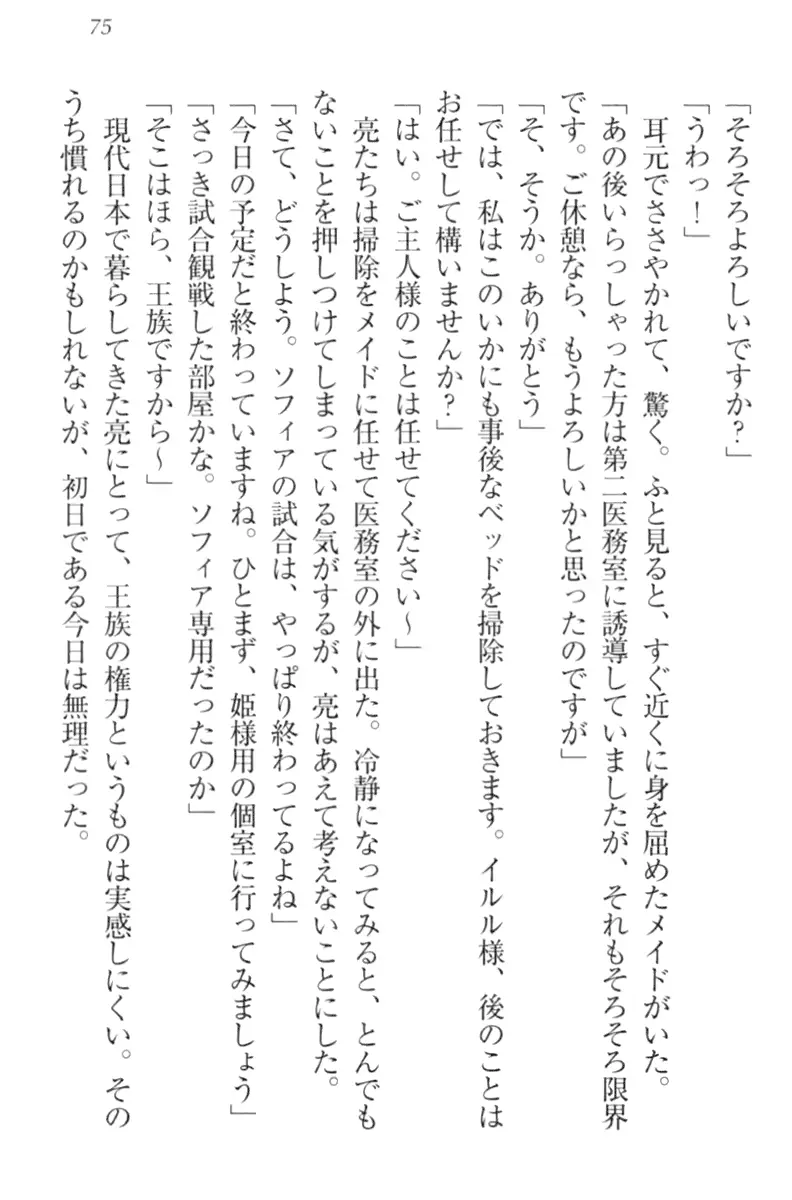 75
「そろそろよろしいですか？」
「うわっ！」
耳元でささやかれて、驚く。ふと見ると、すぐ近くに身を屈めたメイドがいた。
「あの後いらっしゃった方は第二医務室に誘導していましたが、それもそろそろ限界
です。ご休憩なら、もうよろしいかと思ったのですが」
「そ、そうか。ありがとう」
「では、私はこのいかにも事後なベッドを掃除しておきます。イルル様、後のことは
お任せして構いませんか？」
「はい。ご主人様のことは任せてください〜」
亮たちは掃除をメイドに任せて医務室の外に出た。冷静になってみると、とんでも
ないことを押しつけてしまっている気がするが、亮はあえて考えないことにした。
「さて、どうしよう。ソフィアの試合は、やっぱり終わってるよね」
「今日の予定だと終わっていますね。ひとまず、姫様用の個室に行ってみましょう」
「さっき試合観戦した部屋かな。ソフィア専用だったのか」
「そこはほら、王族ですから〜」
現代日本で暮らしてきた亮にとって、王族の権力というものは実感しにくい。その
うち慣れるのかもしれないが、初日である今日は無理だった。